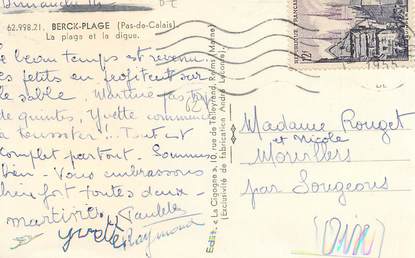 Dimanche 14
62.998.21. BERCK-PLAGE (Pas-de-Calais)
La plage et la digue.
Le beau temps est revenu.
les petits en profitent sur
le sable. Martine pas trop
de quintes, Yvette commence
à tousser. Tout est
complet partout. Sommes
bien. Vous embrassons
bien fort toutes deux.
martine Paulette
yvette Raymond
Edit. « La Cigogne », 10, rue de Talleyrand, Reims (Marne)
(Exclusivité de fabrication André Leconte)
12F
Madame Rouget
et Nicole
par Songeons
(Oise)